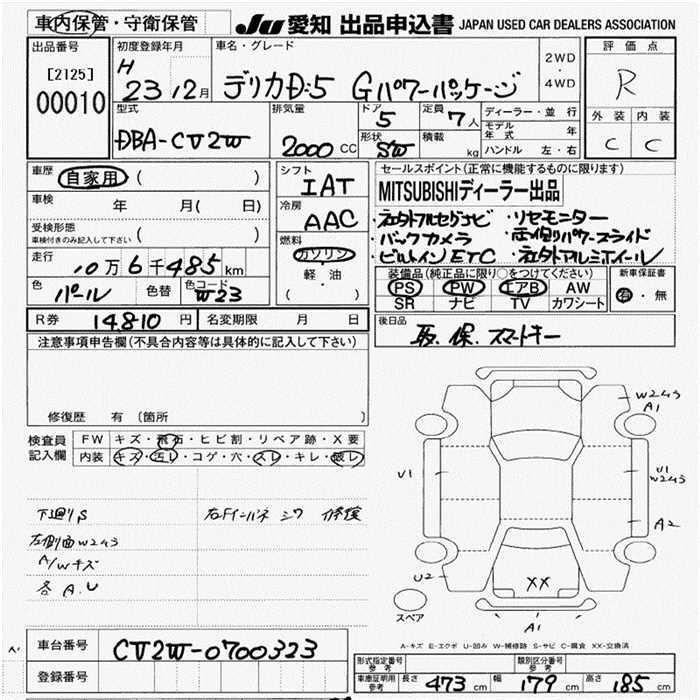 車内保管・守衛保管 JU 愛知 出品申込書 JAPAN USED CAR DEALERS ASSOCIATION
出品番号 初度登録年月 車名・グレード 2WD・4WD 評価点
[2125] H 23 12月 デリカD:5 Gパワーパッケージ R
00010
型式 排気量 ドア 5 定員 7人 ディーラー・並行 外装 内装
DBA-CV2W 2000 CC 形状 SW 積載 kg モデル年式 年 C C
ハンドル 左・右
車歴 自家用 ( ) シフト IAT セールスポイント(正常に機能するものに限ります)
車検 年 月( 日) 冷房 AAC MITSUBISHIディーラー出品
受検形態 ( ) ・社外フルセグナビ ・リヤモニター
車検付きのみ記入して下さい 燃料 ガソリン ・バックカメラ ・両側パワースライド
走行 10万6千485km 軽・油 ・ビルトインETC ・社外アルミホイール
色 パール 色替 色コード W23 ( ) 装備品(純正品に限り○をつけてください) 新車保証書
PS PW エアB AW 有・無
SR ナビ TV カワシート
R券 14810 円 名変期限 月 日 後日品
取.保.スマートキー
注意事項申告欄(不具合内容等は具体的に記入して下さい)
修復歴 有 (箇所 )
検査員記入欄 FW キズ・飛石・ヒビ割・リペア跡・X要
内装 キズ・汚レ・コゲ・穴・スレ・キレ・破レ
W243
A1
U1
U1
W243
A2
U2
XX
スペア
A1
下廻りS 右Fインパネ シワ 修復
左側面W243
A/Wキズ
各 A.U
A-キズ E-エクボ U-凹み W-補修跡 S-サビ C-腐食 XX-交換済
車台番号 CV2W-0700323
登録番号
形式指定番号 参考 類別区分番号 参考
車庫証明用 参考 長さ 473 cm 幅 179 cm 高さ 185 cm